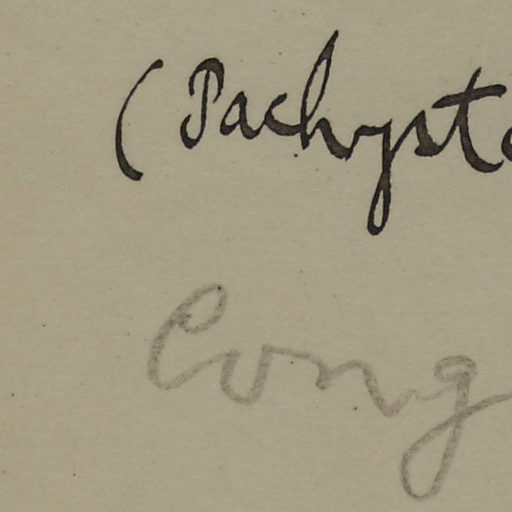 (Pachyst
Cong